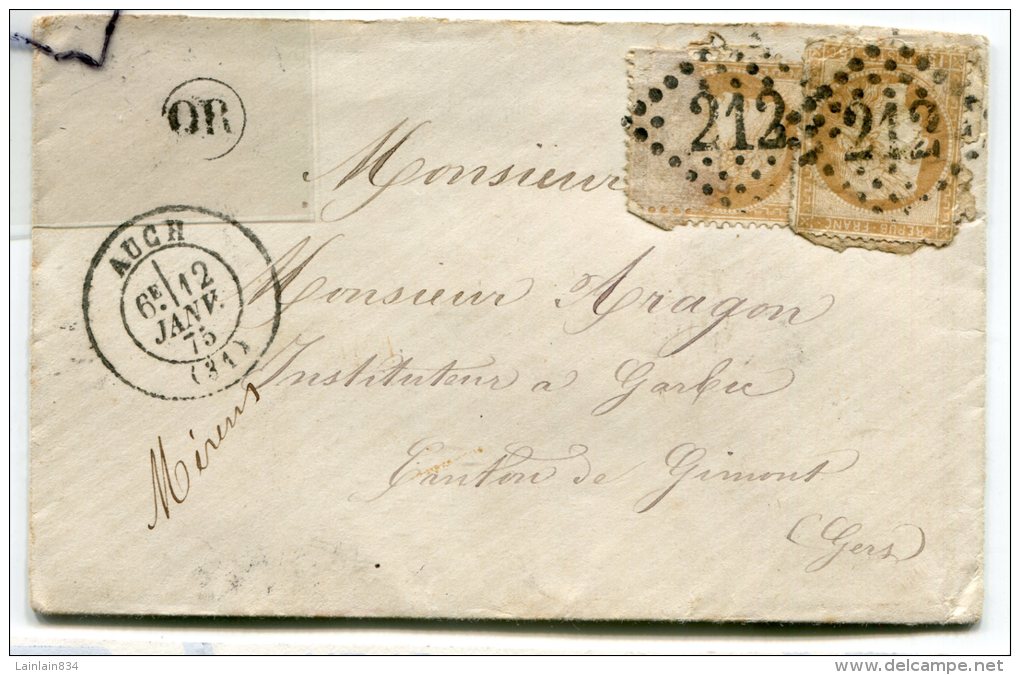 OR
212 212
REPUB FRANC
Monsieur
AUCH
6E 12
JANV.
75
(31)
Monsieur Aragon
Instituteur à Garbic
Canton de Gimont
(Gers)
Mérens
Lainlain834
www.delcampe.net